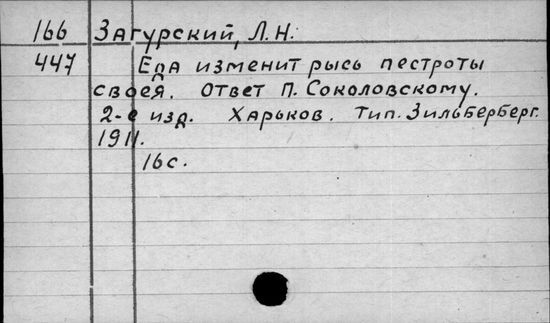 166 Загурский, Л.Н.
447 Еда изменит рысь пестроты
своея. Ответ П. Соколовскому.
2-е изд. Харьков. Тип. Зильберберг.
1911.
16с.